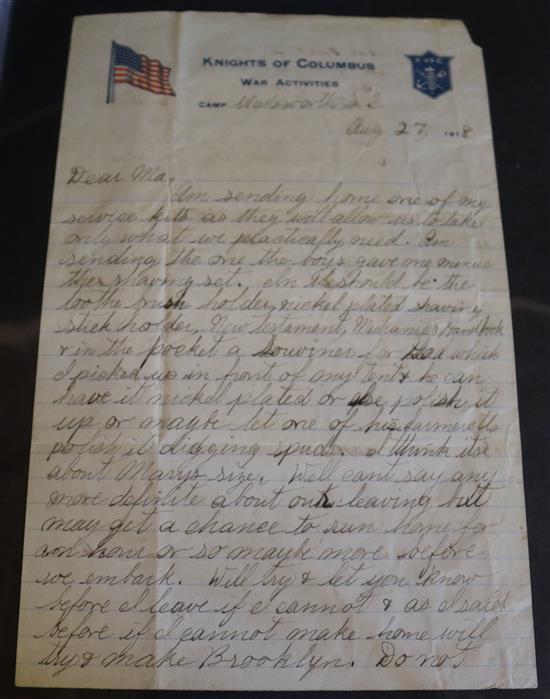 KNIGHTS OF COLUMBUS
WAR ACTIVITIES
CAMP Wadsworth S C
Aug 27, 1918
Dear Ma,
Am sending home one of my
service kits as they will allow us to take
only what we practically need. Am
sending the one the boys gave me minus
the shaving set. In it should be the
toothbrush holder, nickel plated shaving
stick holder, New testament, Mechanics Handbook
& in the pocket a Souviner for Dad which
I picked up in front of my tent & he can
have it nickel plated or use polish it
up or maybe let one of his farmeretts
polish it digging spuds. I think its
about Marys size. Well cant say any
more definite about our leaving but
may get a chance to run home for
an hour or so maybe more before
we embark. Will try & let you know
before I leave if I cannot & as I said
before if I cannot make home will
try & make Brooklyn. Do not